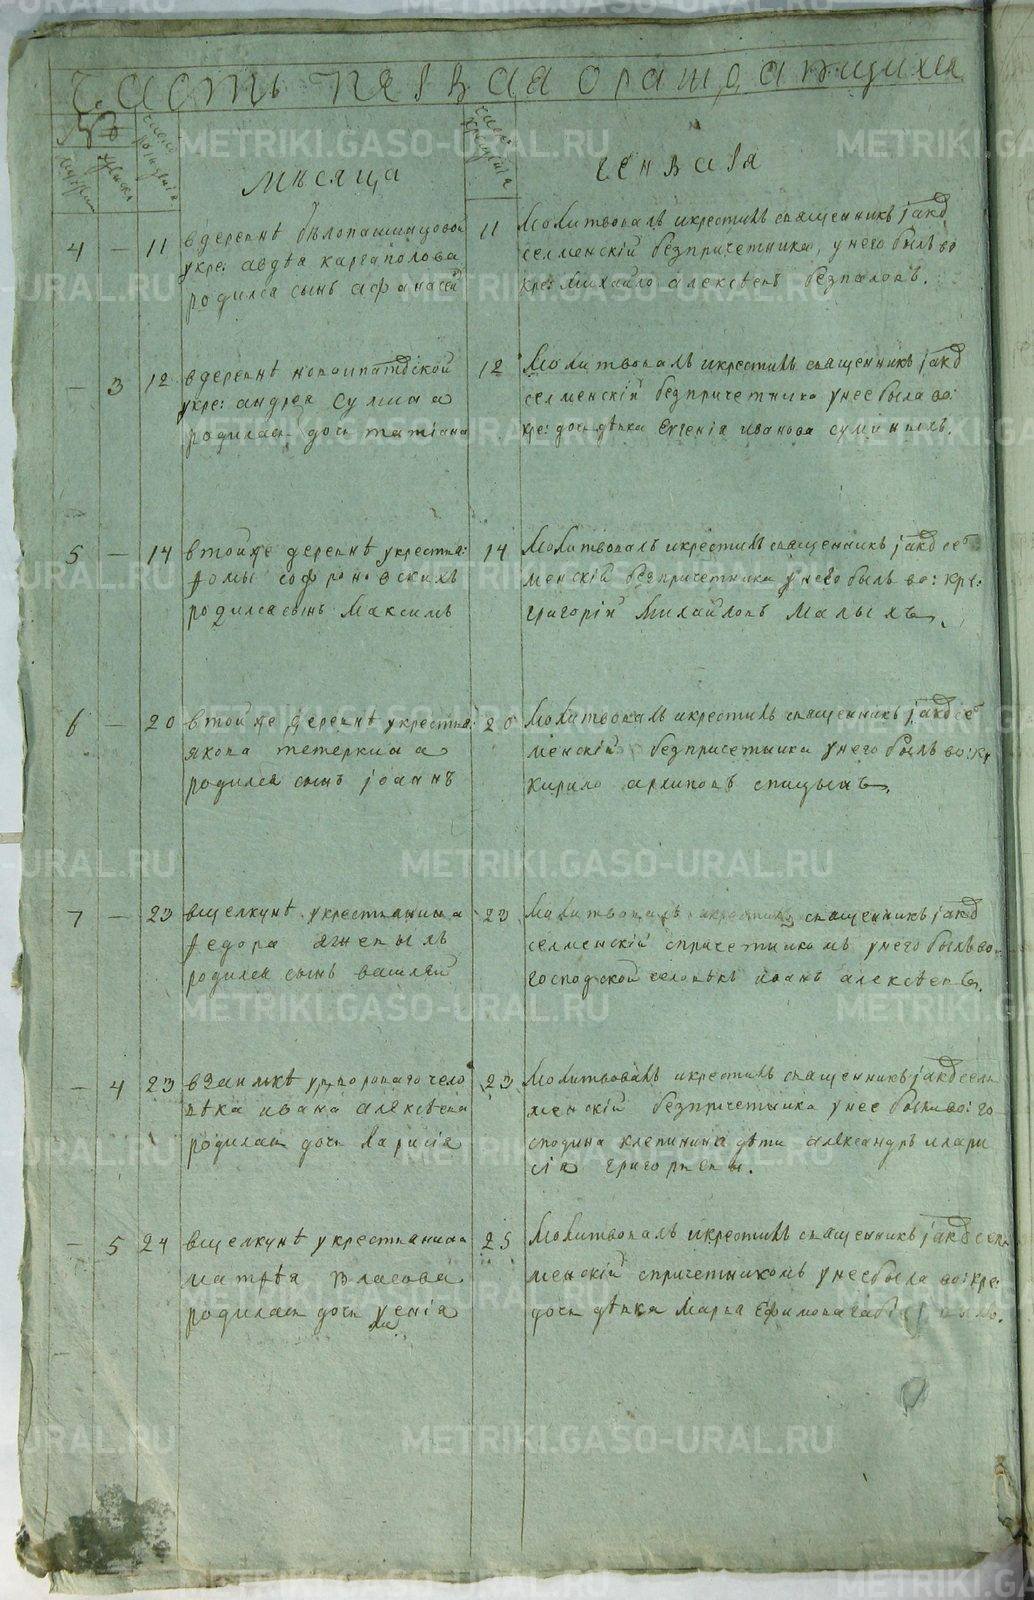 Часть первая о раждающихся
№
мужеска
женска
число рождения
месяца
число крещения
генваря
4 — 11
в деревнѣ бѣлопашинцовой
у кре: авдѣа каргаполова
родился сынъ афанасей
11
Молитвовалъ и крестилъ священникъ јаков
селменскій без причетника, у него былъ во
кре: Михайло алексѣевъ безпаловъ.
— 3 12
в деревнѣ новоипатовской
у кре: андрея сумина
родилась дочь татіана
12
Молитвовалъ и крестилъ священникъ јаков
селменскій без причетника у нее была во:
кре: дочь дѣвка Евгенія иванова суминыхъ.
5 — 14
в той же деревнѣ у крестья:
фомы софроновскихъ
родился сынъ Максимъ
14
Молитвовалъ и крестилъ священникъ јаков сел
менскій без причетника у него былъ во: кре:
григорій Михайловъ Малыхъ.
6 — 20
в той же деревнѣ у крестья:
якова тетеркина
родился сынъ јоаннъ
20
Молитвовалъ и крестилъ священникъ јаков сел
менскій без причетника у него былъ во: кр
кирило архиповъ спицынъ.
7 — 23
в щелкунѣ у крестьянина
федора агневыхъ
родился сынъ василей
23
Молитвовалъ и крестилъ священникъ јаков
селменскій с причетникомъ у него былъ во:
господской человѣкъ иванъ алексѣевъ.
— 4 23
в заимкѣ у дворового чело
вѣка ивана алексѣева
родилась дочь Ларисіа
23
Молитвовалъ и крестилъ священникъ јаков селл
менскій без причетника у нее были во: го
сподина клепинина дѣти александръ и лари
сіа григорьевы.
— 5 24
в щелкунѣ у крестьянина
матвѣа власова
родилась дочь ксенія
25
Молитвовалъ и крестилъ священникъ јаков сел
менскій с причетникомъ у нее была во: кре:
дочь дѣвка Марѳа Ефимова
METRIKI.GASO-URAL.RU